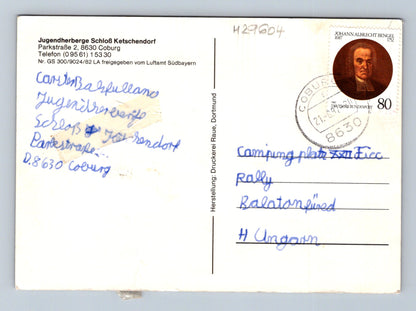 Jugendherberge Schloß Ketschendorf
Parkstraße 2, 8630 Coburg
Telefon (0 95 61) 1 53 30
Nr. GS 300/9024/82 LA freigegeben vom Luftamt Südbayern
H29604
JOHANN ALBRECHT BENGEL
1687
DEUTSCHE BUNDESPOST
80
COBURG
8630
Herstellung: Druckerei Raue, Dortmund
Carsten
Jugendherberge
Schloß Ketschendorf
Parkstraße
D.8630 Coburg
Campingplatz XXVII Ficc
Rally
Balatonfüred
H Ungarn